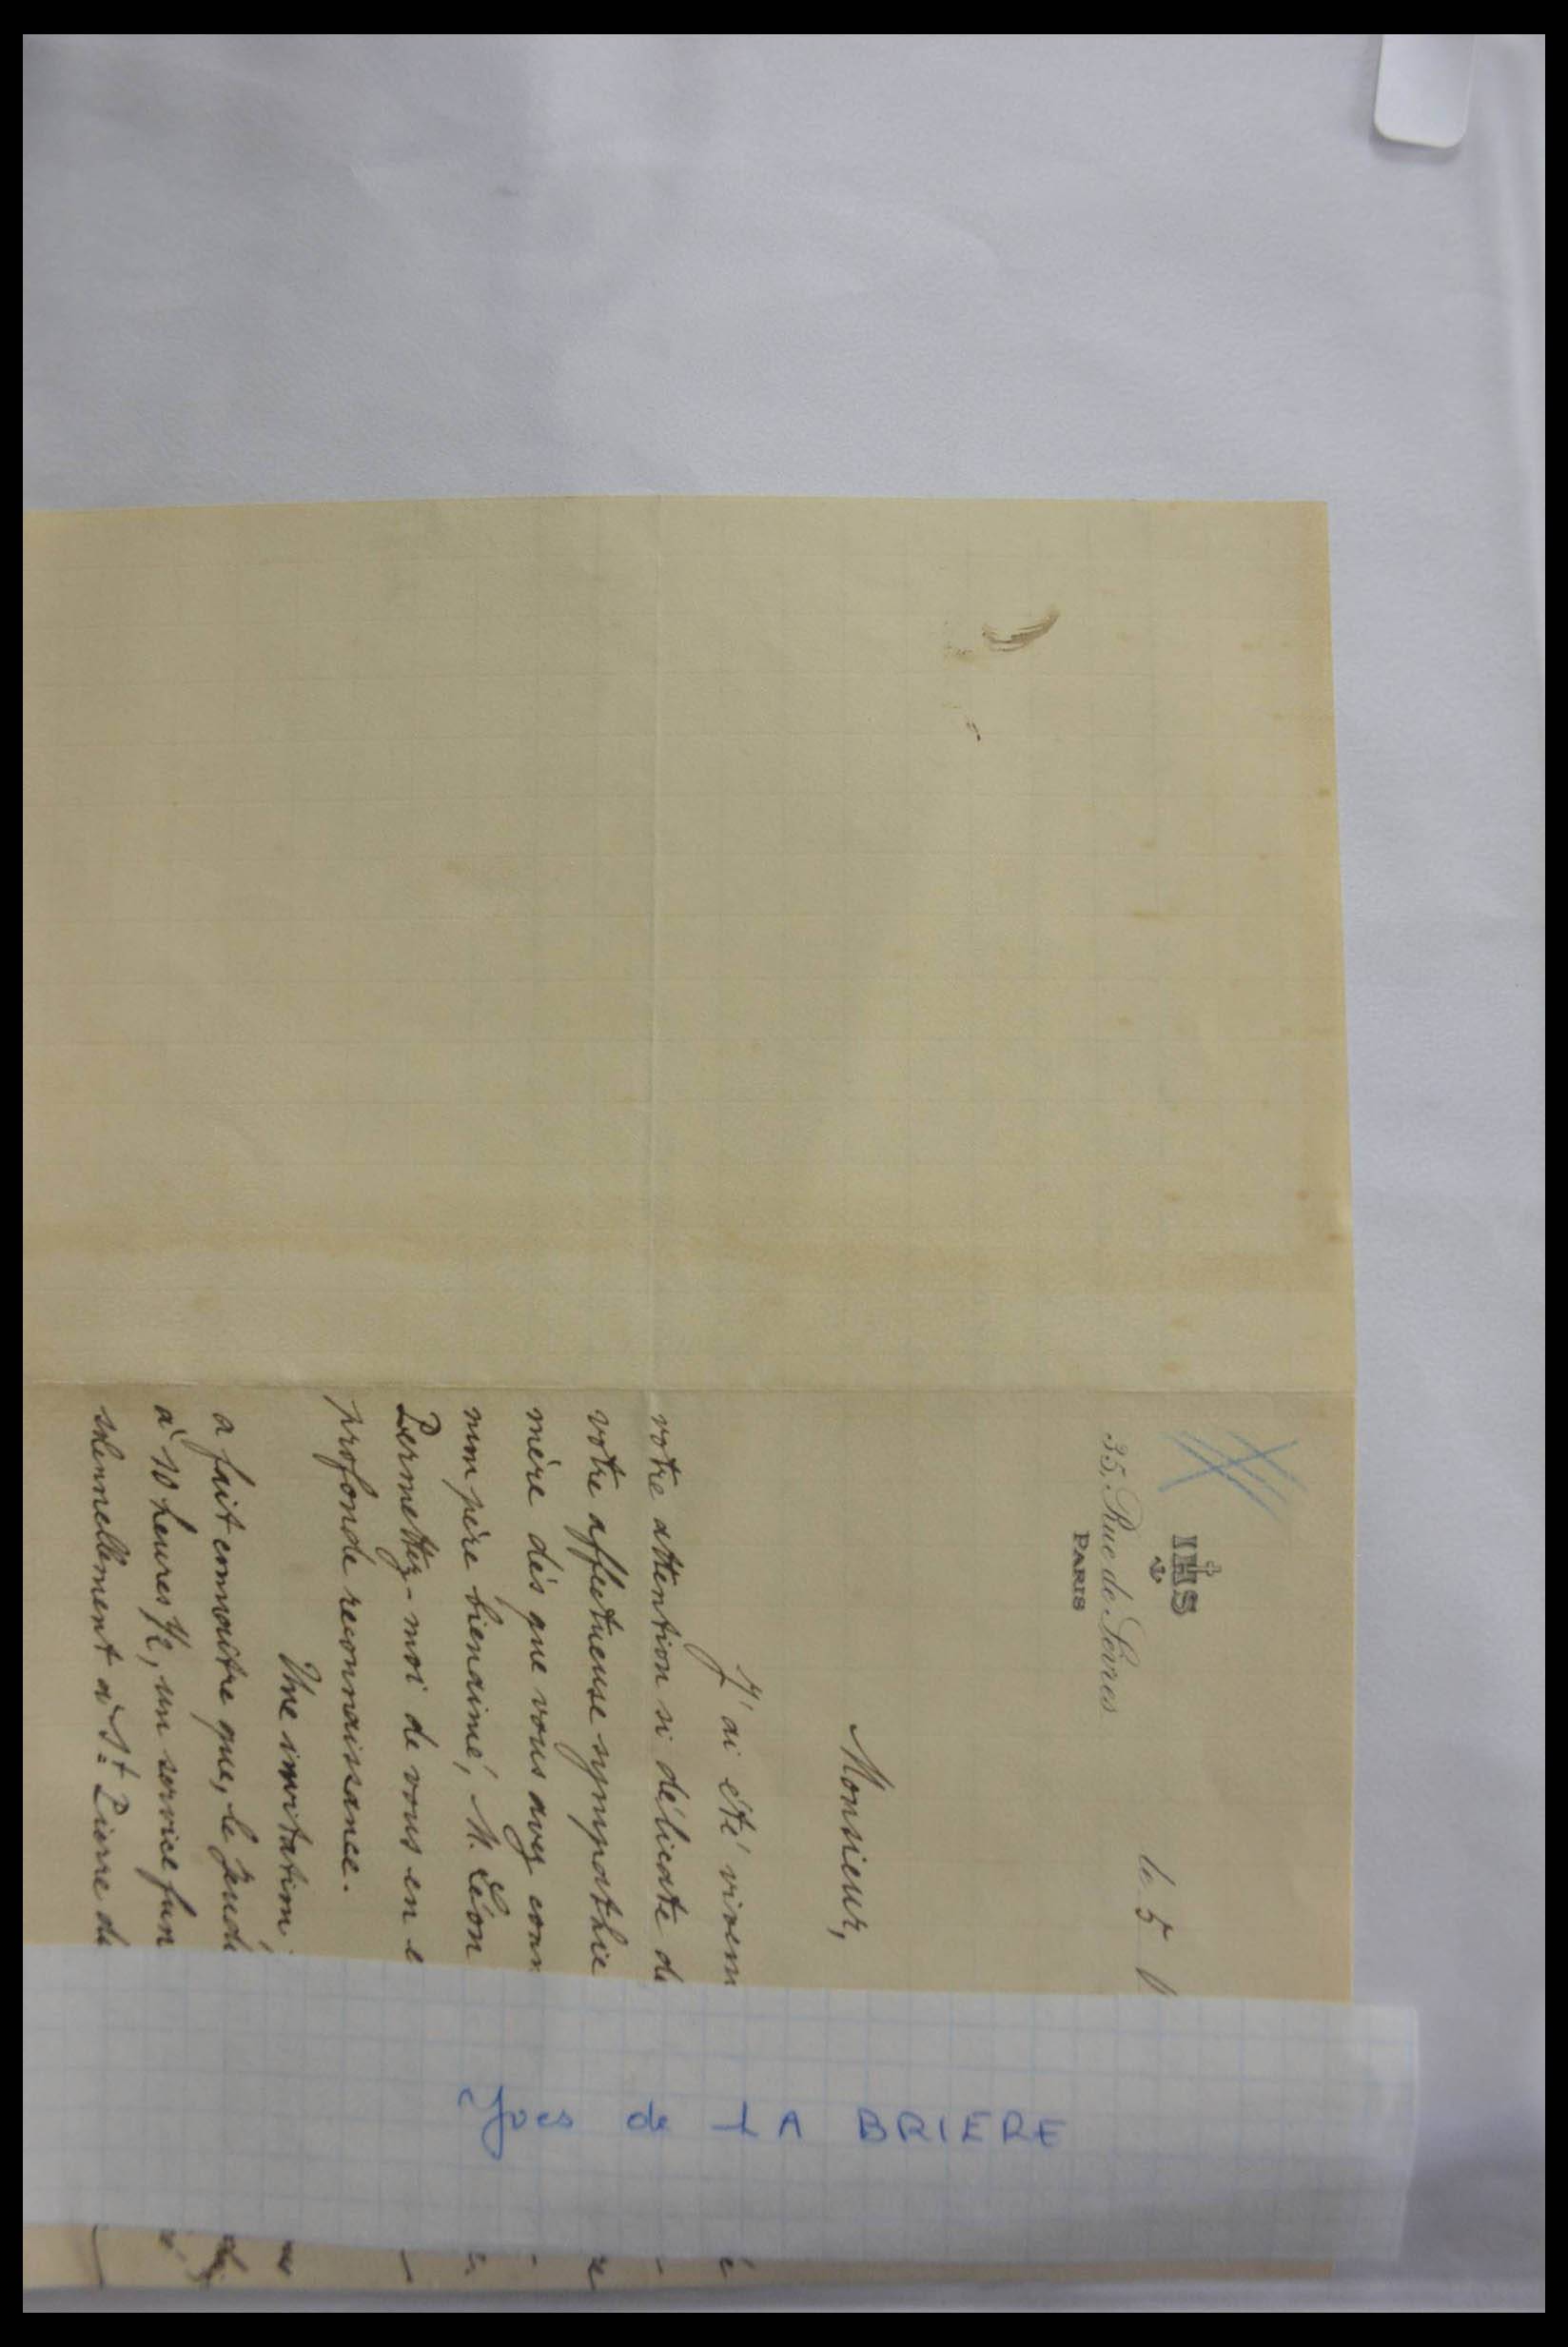 IHS
35, Rue de Sèvres
PARIS
le 5
Monsieur,
J'ai été vivem
votre attention si délicate de
votre affectueuse sympathie
mère dès que vous avez conn
mon père bienaimé, M. Léon
Permettez-moi de vous en e
profonde reconnaissance.
Une invitation
a fait connaître que, le Jeudi
à 10 heures 1/2, un service fun
solennellement à St Pierre du
Yves de LA BRIERE